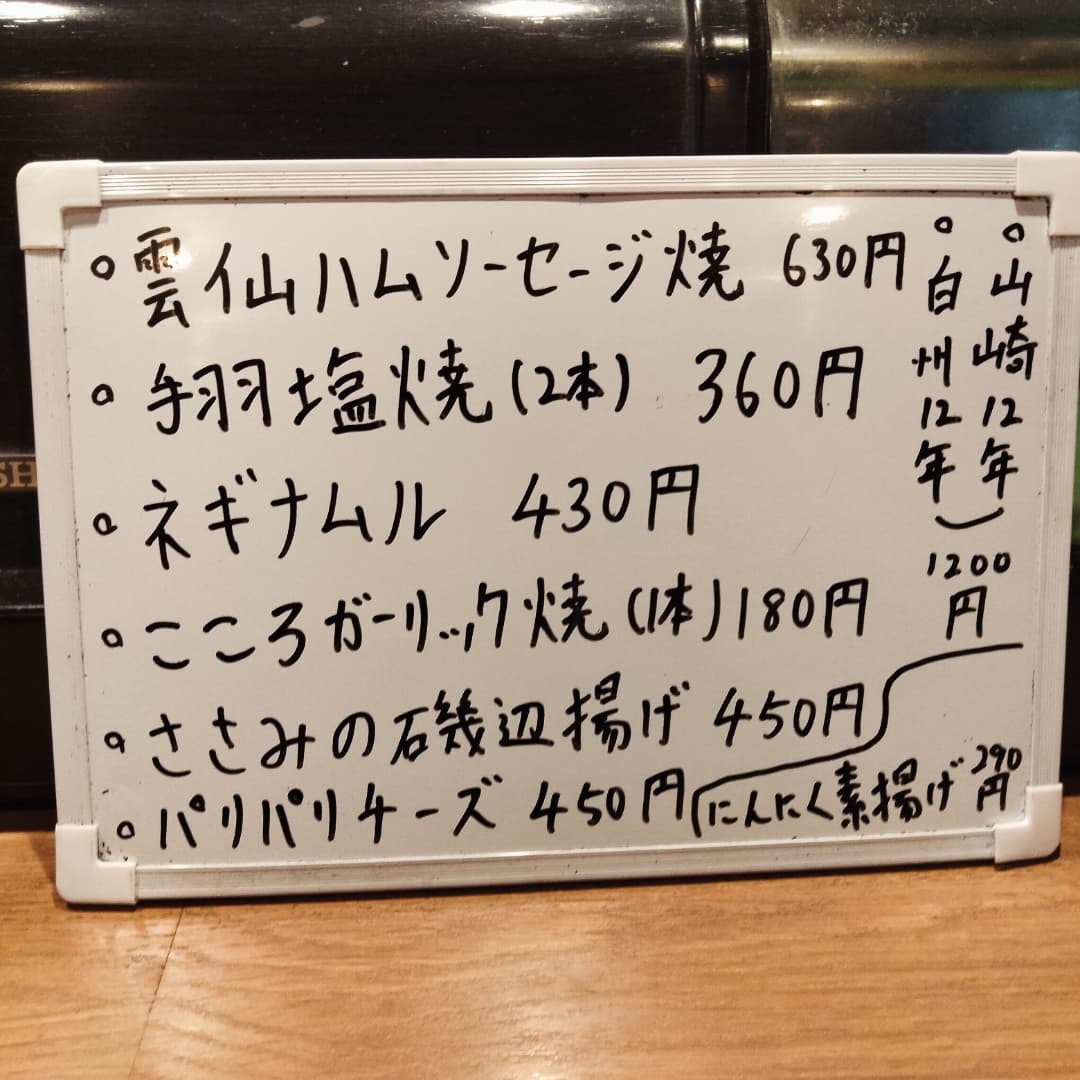 ◦雲仙ハムソーセージ焼 630円
◦手羽塩焼(2本) 360円
◦ネギナムル 430円
◦こころガーリック焼(1本)180円
◦ささみの磯辺揚げ 450円
◦パリパリチーズ 450円
にんにく素揚げ 290円
◦山崎12年
◦白州12年
1200円
SH